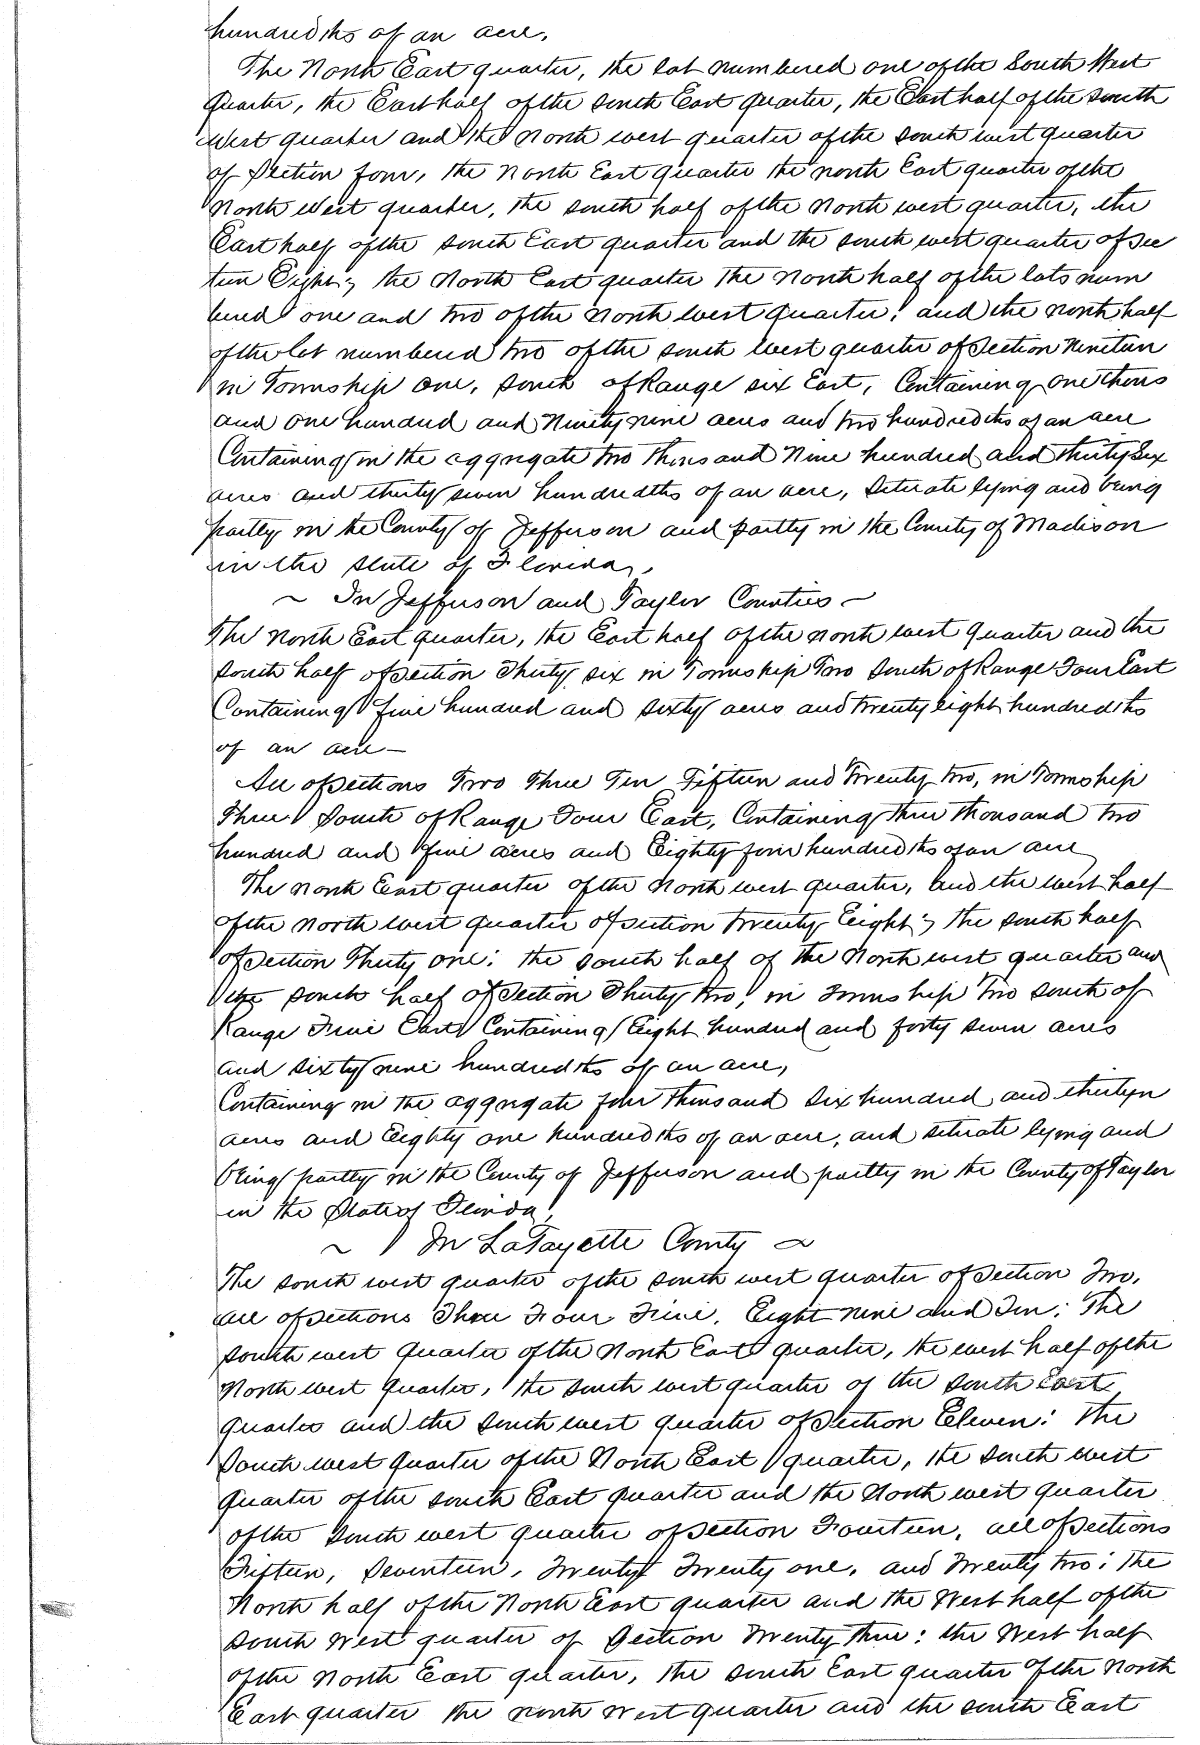 hundredths of an acre,
The North East quarter, the lot numbered one of the South West
quarter, the East half of the South East quarter, the East half of the South
West quarter and the North west quarter of the South west quarter
of Section four, the North East quarter the north East quarter of the
North West quarter, the south half of the North west quarter, the
East half of the South East quarter and the south west quarter of Sec
tion Eight; the North East quarter the North half of the lots num
bered one and two of the North west quarter; and the north half
of the lot numbered two of the South West quarter of Section Nineteen
in Township one, South of Range six East, Containing one thous
and one hundred and Ninety nine acres and two hundredths of an acre
Containing in the aggregate two thousand Nine hundred and thirty Six
acres and thirty seven hundredths of an acre, Situate lying and being
partly in the County of Jefferson and partly in the County of Madison
in the State of Florida,
~ In Jefferson and Taylor Counties ~
The North East quarter, the East half of the north west quarter and the
South half of Section Thirty six in Township Two South of Range Four East
Containing five hundred and sixty acres and twenty eight hundredths
of an acre —
All of Sections Two Three Ten Fifteen and Twenty two, in Township
Three South of Range Four East, Containing three thousand two
hundred and five acres and Eighty four hundredths of an acre
The North East quarter of the North west quarter, and the west half
of the North west quarter of Section twenty Eight; the South half
of Section Thirty one; the South half of the North west quarter and
the South half of Section Thirty two; in Township two South of
Range Five East Containing Eight hundred and forty seven acres
and sixty nine hundredths of an acre,
Containing in the aggregate four thousand Six hundred and thirteen
acres and Eighty one hundredths of an acre, and situate lying and
being partly in the County of Jefferson and partly in the County of Taylor
in the State of Florida,
~ In LaFayette County ~
The South west quarter of the South west quarter of Section Two,
all of Sections Three Four Five, Eight Nine and Ten; The
South west quarter of the North East quarter, the west half of the
North west quarter, the South west quarter of the South East
quarter and the South west quarter of Section Eleven: The
South west quarter of the North East quarter, the South West
quarter of the South East quarter and the North west quarter
of the South west quarter of Section Fourteen, all of Sections
Fifteen, Seventeen, Twenty Twenty one, and Twenty two; the
North half of the North East quarter and the West half of the
South West quarter of Section Twenty three: the West half
of the North East quarter, the South East quarter of the North
East quarter the North West quarter and the South East